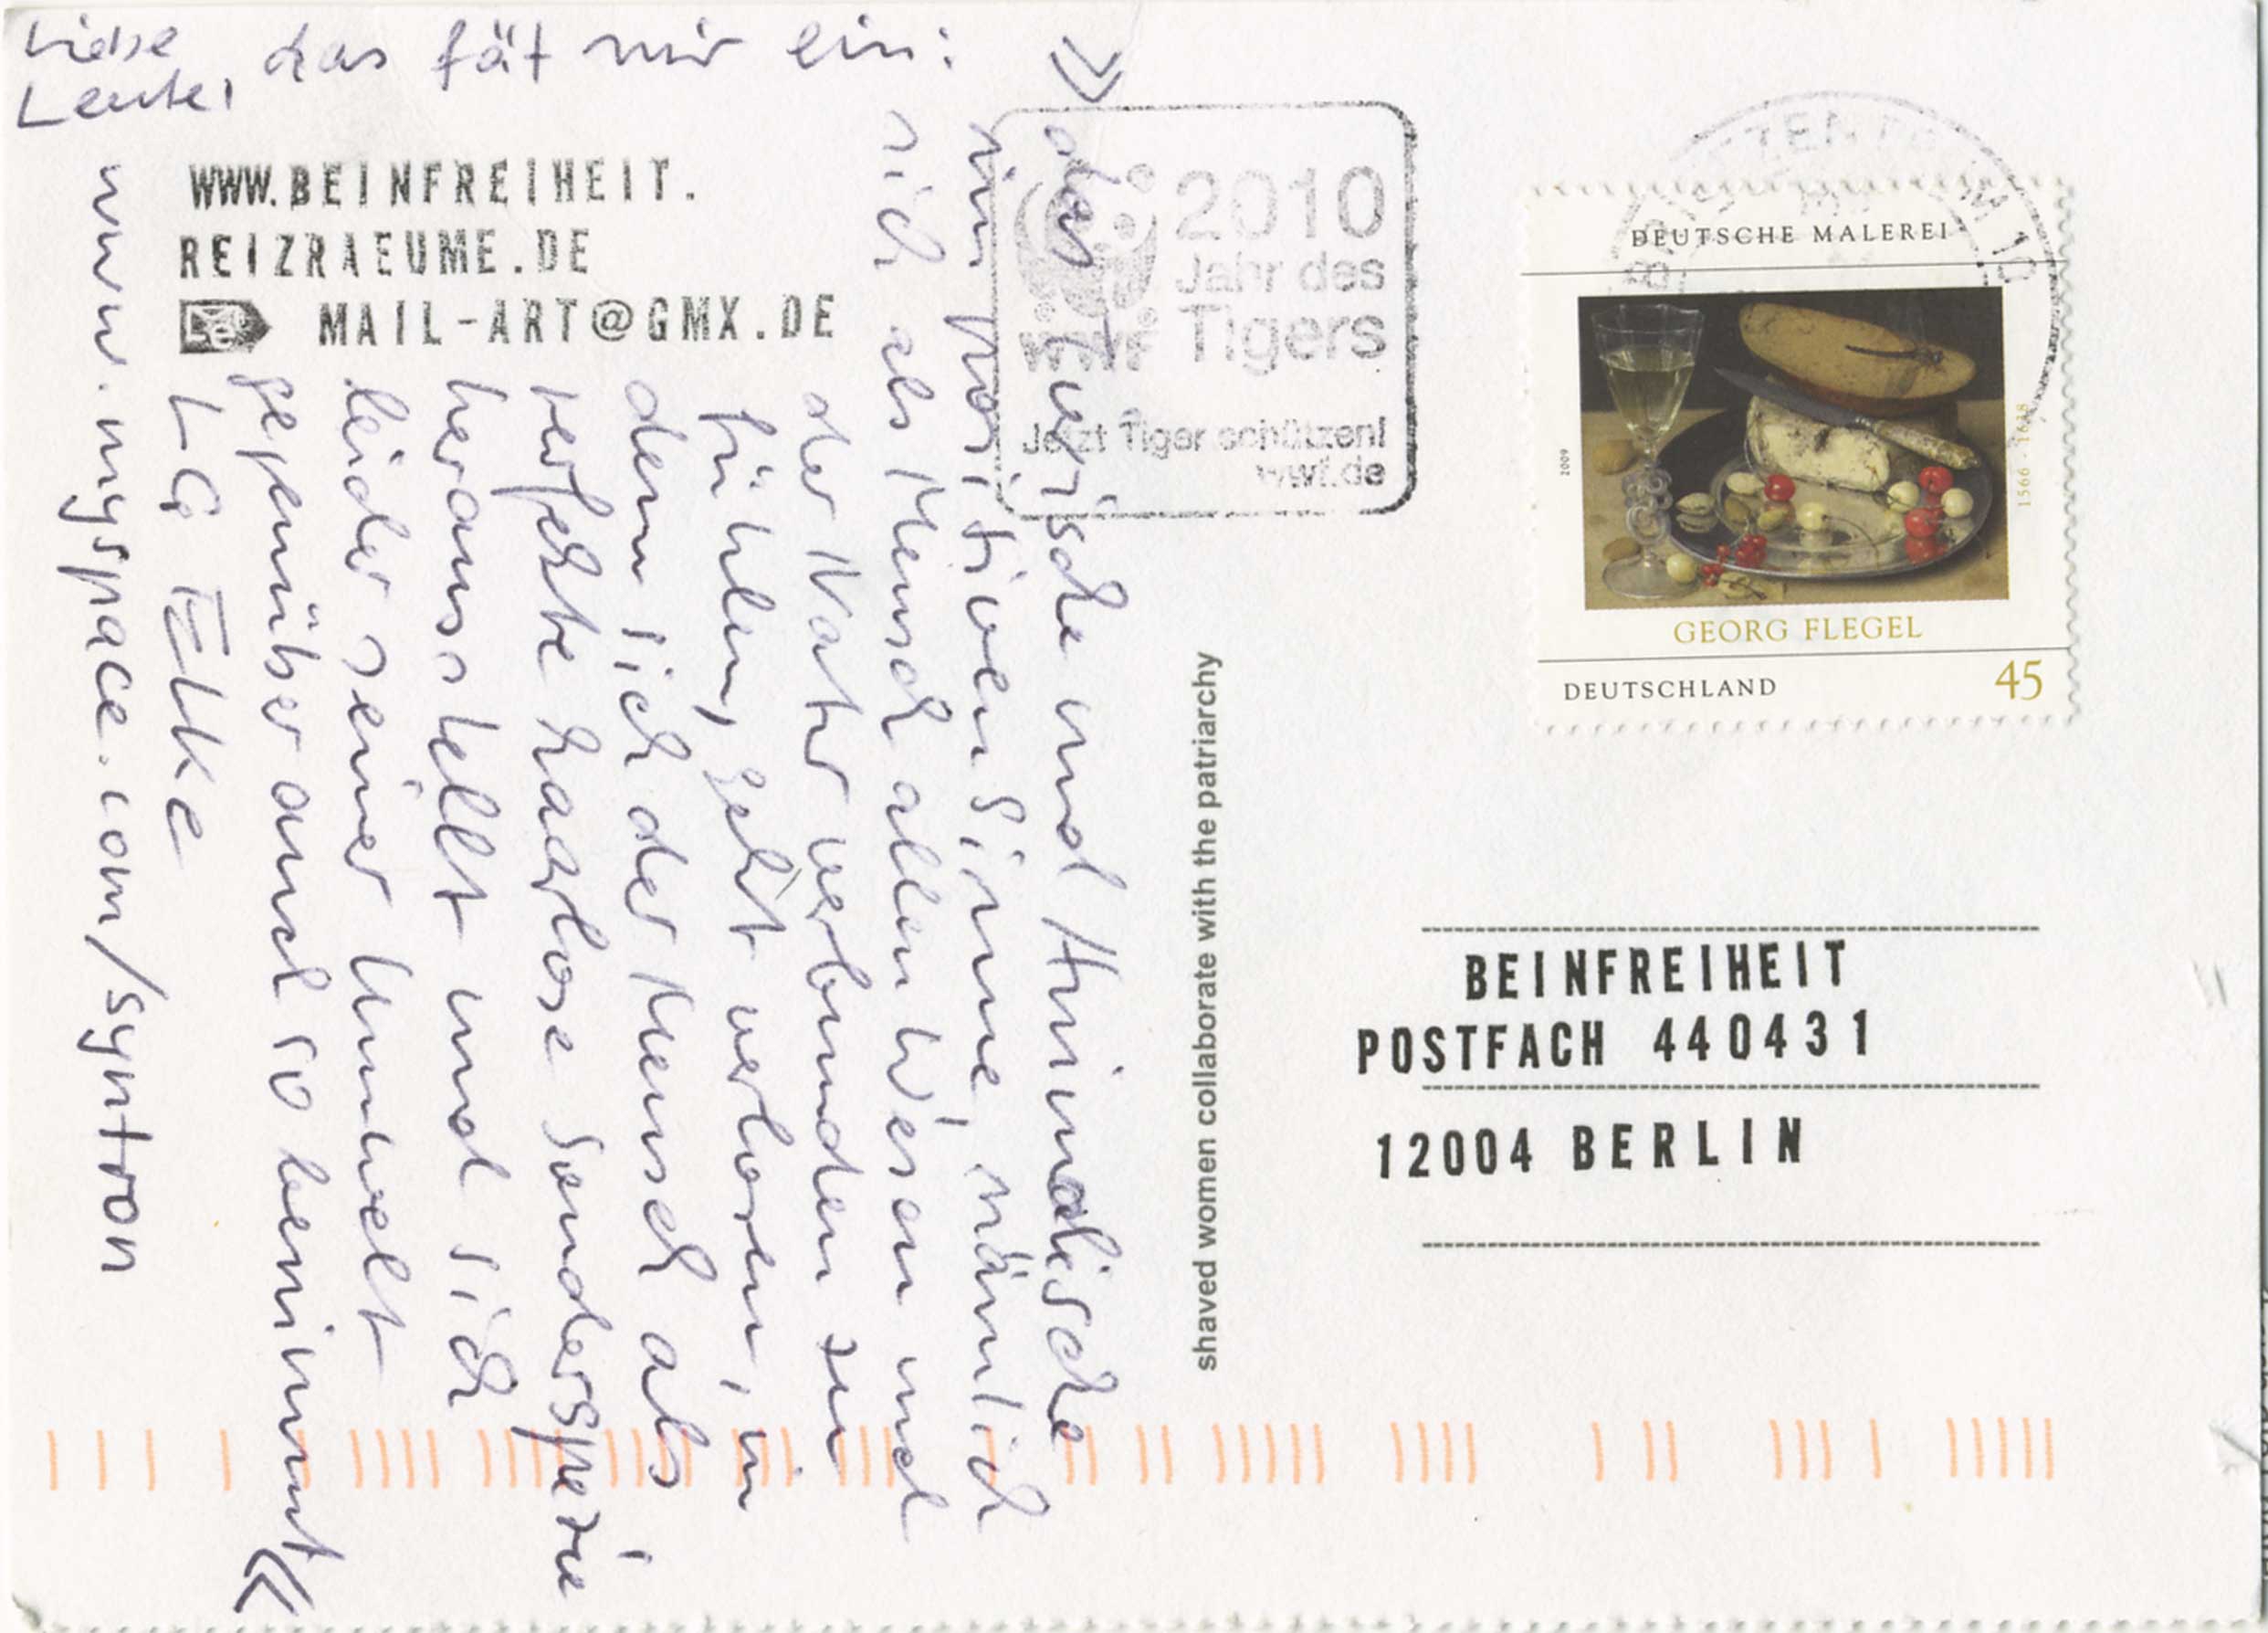 Liebe
Leute,
das fät mir ein:
» das Tierische und Hündische
im positiven Sinne, nämlich
sich als Mensch allen Wesen und
der Natur verbunden zu
fühlen, geht verloren, in
dem sich der Mensch als
perfekte haarlose Sonderspezie
herausstellt und sich
leider seiner Umwelt
gegenüber auch so benimmt «
LG Elke
www.myspace.com/syntron
WWW.BEINFREIHEIT.
REIZRAEUME.DE
MAIL-ART@GMX.DE
2010
Jahr des
Tigers
WWF
Jetzt Tiger schützen!
wwf.de
shaved women collaborate with the patriarchy
BRIEFZENTRUM 10
DEUTSCHE MALEREI
2009
1566 - 1638
GEORG FLEGEL
DEUTSCHLAND 45
BEINFREIHEIT
POSTFACH 440431
12004 BERLIN